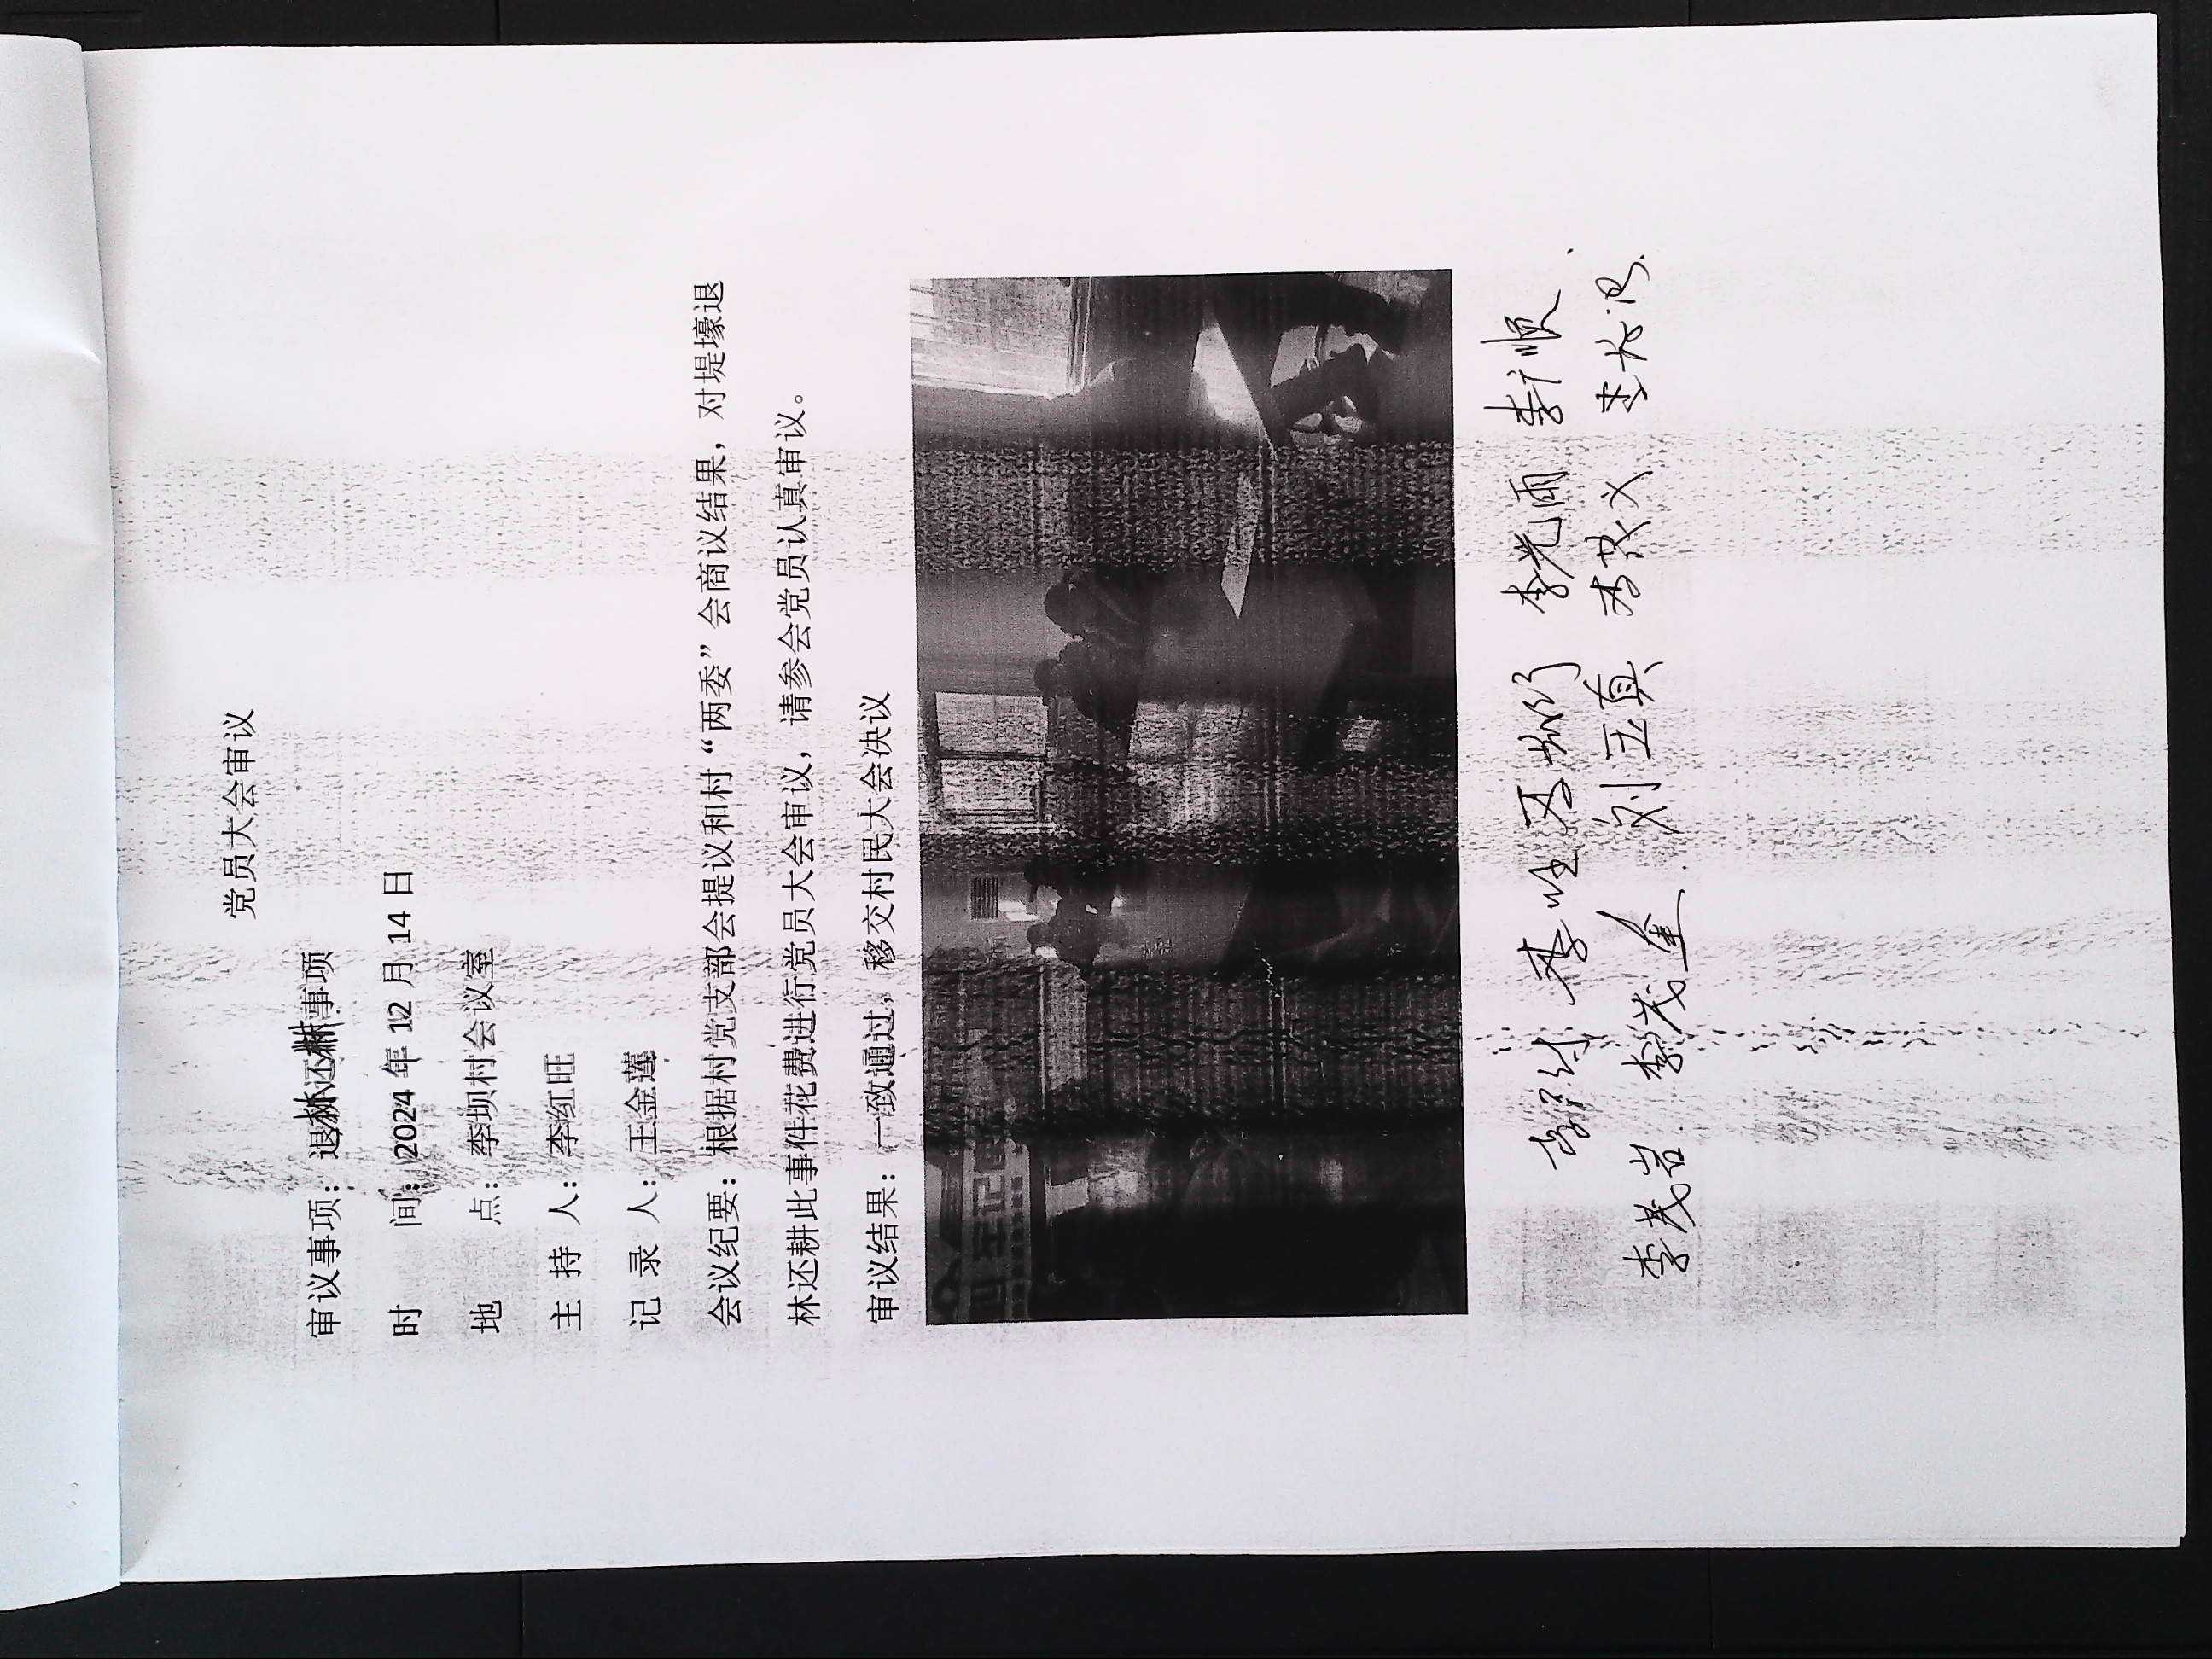 党员大会审议
审议事项：退林还耕事项
时 间：2024年12月14日
地 点：李坝村会议室
主 持 人：李红旺
记 录 人：王金莲
会议纪要：根据村党支部会提议和村“两委”会商议结果，对堤壕退
林还耕此事件花费进行党员大会审议，请参会党员认真审议。
审议结果：一致通过，移交村民大会决议
李光雨
李茂岩 李茂奎 刘玉真 李茂义